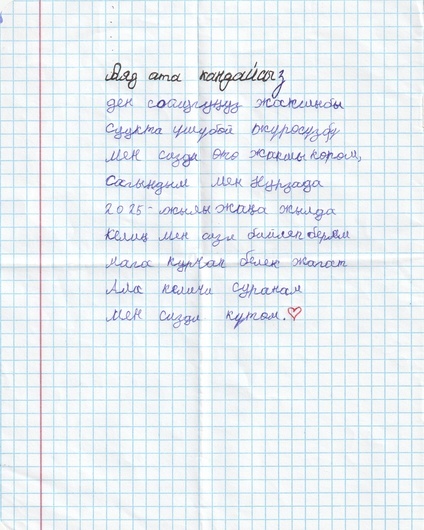 Аяд ата кандайсыз
ден соолугуңуз жакшынбы
суукта үшүбөй жүросузбу
мен сизди ого жакшы кором,
Сагындым мен Нурзада
2025-жылы жаңа жылда
келиң мен сизи бийлеп берем
мага курчак белек жагат
Ала келиңи суранам
мен сизди кутом.